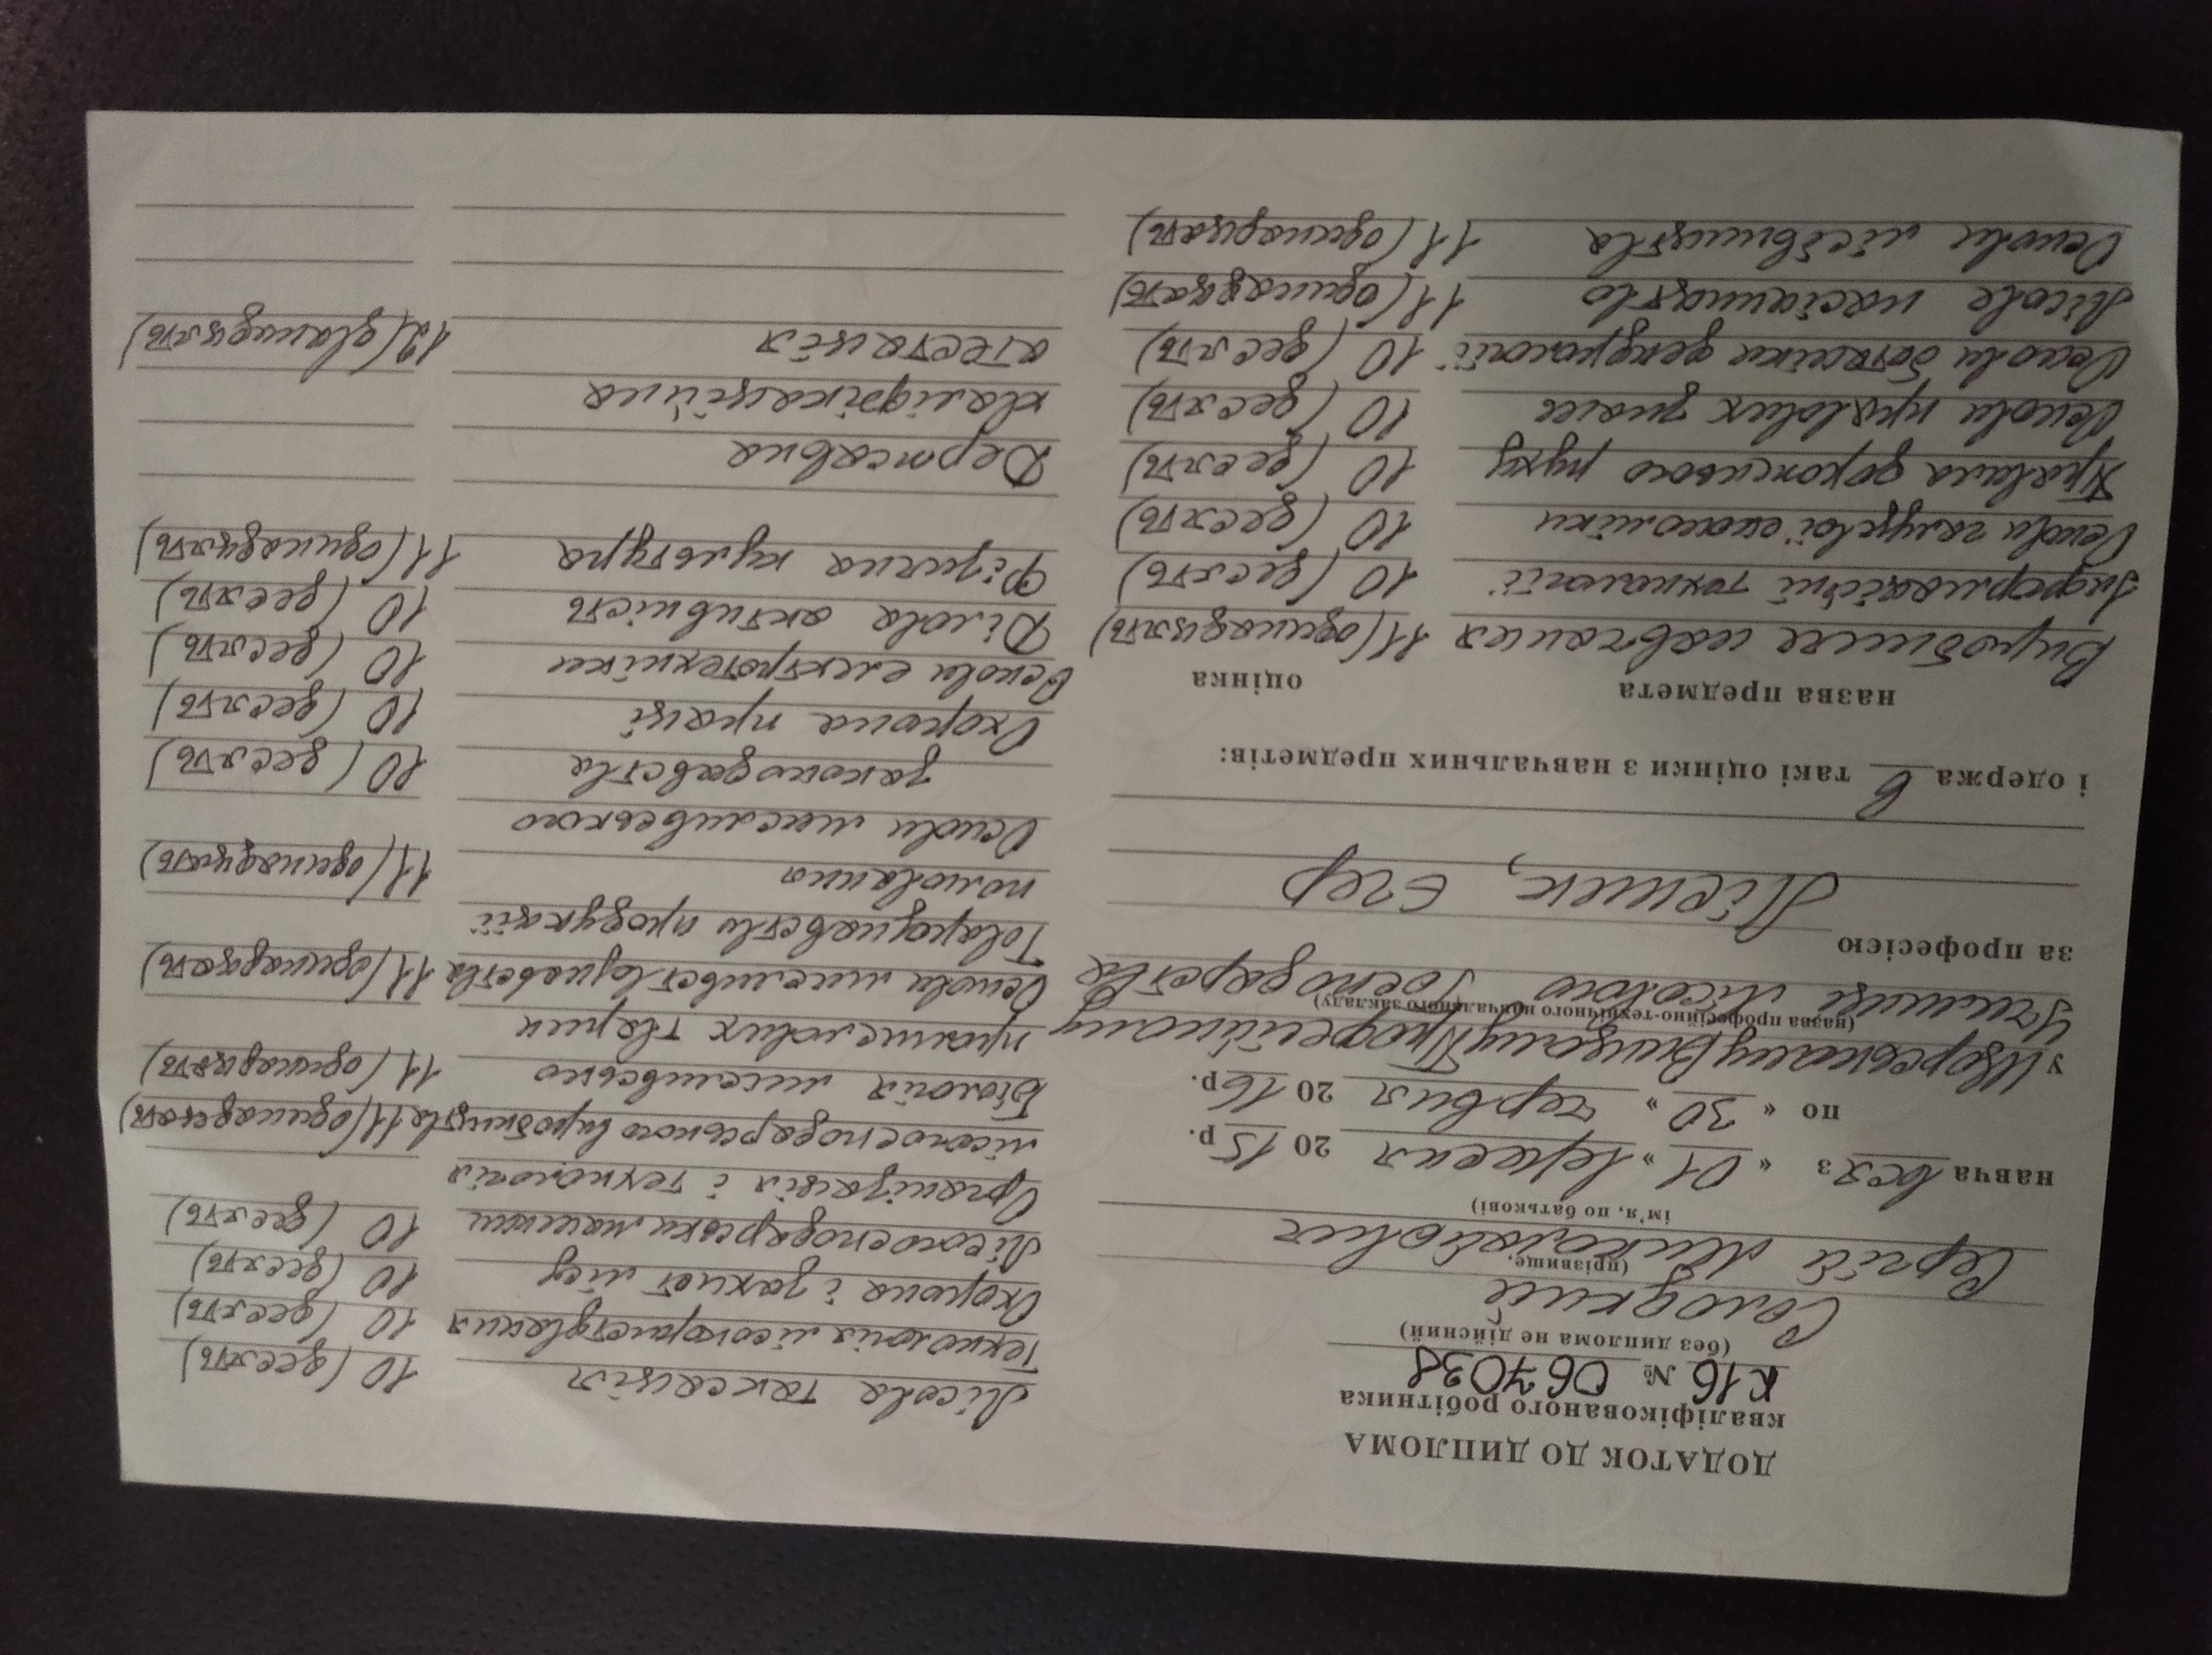 ДОДАТОК ДО ДИПЛОМА
кваліфікованого робітника
К16 № 067038
(без диплома не дійсний)
Солодкий
(прізвище,
Сергій Миколайович
ім'я, по батькові)
навча вся з « 01 » вересня 2015 р.
по « 30 » червня 2016 р.
у Цюрупинському Вищому Професійному
(назва професійно-технічного навчального закладу)
Училище Лісового Господарства
за професією Лісник, Єгер
і одержа в такі оцінки з навчальних предметів:
назва предмета оцінка
Виробниче навчання 11 (одинадцять)
Інформаційні технології 10 (десять)
Основи галузевої економіки 10 (десять)
Правила дорожнього руху 10 (десять)
Основи правових знань 10 (десять)
Основи ботаніки дендрології 10 (десять)
Лісове насінництво 11 (одинадцять)
Основи лісівництва 11 (одинадцять)
Лісова таксація 10 (десять)
Технологія лісокористування 10 (десять)
Охорона і захист лісу 10 (десять)
Лісогосподарські машини 10 (десять)
Організація і технологія
лісогосподарського виробництва 11 (одинадцять)
Біологія мисливсько
промислових тварин 11 (одинадцять)
Основи мисливствознавства 11 (одинадцять)
Товарознавство продукції
полювання 11 (одинадцять)
Основи мисливського
законодавства 10 (десять)
Охорона праці 10 (десять)
Основи електротехніки 10 (десять)
Ділова активність 10 (десять)
Фізична культура 11 (одинадцять)
Державна
кваліфікаційна
атестація 12 (дванадцять)